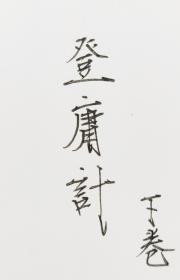 登庸計
下卷